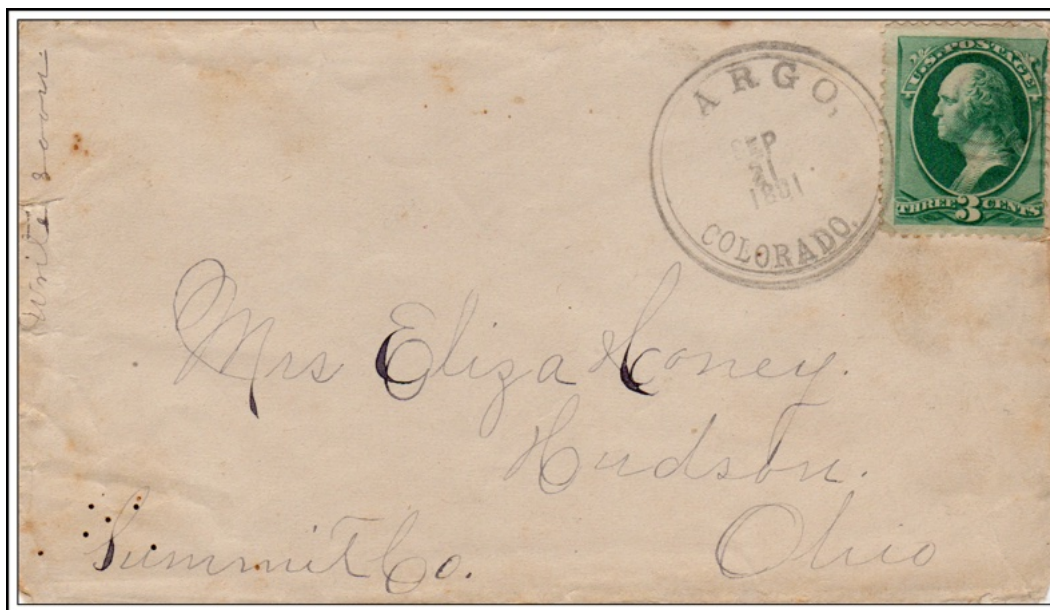 Write soon
ARGO,
SEP
21
1881
COLORADO.
U.S. POSTAGE
THREE 3 CENTS
Mrs Eliza Coney.
Hudson.
Summit Co.
Ohio